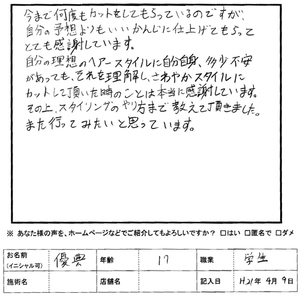 今まで何度もカットをしてもらっているのですが、
自分の予想よりもいいかんじに仕上げてもらって
とても感謝しています。
自分の理想のヘアースタイルに自分自身、多少不安
があっても、それを理解し、さわやかスタイルに
カットして頂いた時のことは本当に感謝しています。
その上、スタイリングのやり方まで教えて頂きました。
また行ってみたいと思っています。
※ あなた様の声を、ホームページなどでご紹介してもよろしいですか？ □はい □匿名で □ダメ
お名前(イニシャル可) 優典 年齢 17 職業 学生
施術名 店舗名 記入日 H21年4月9日